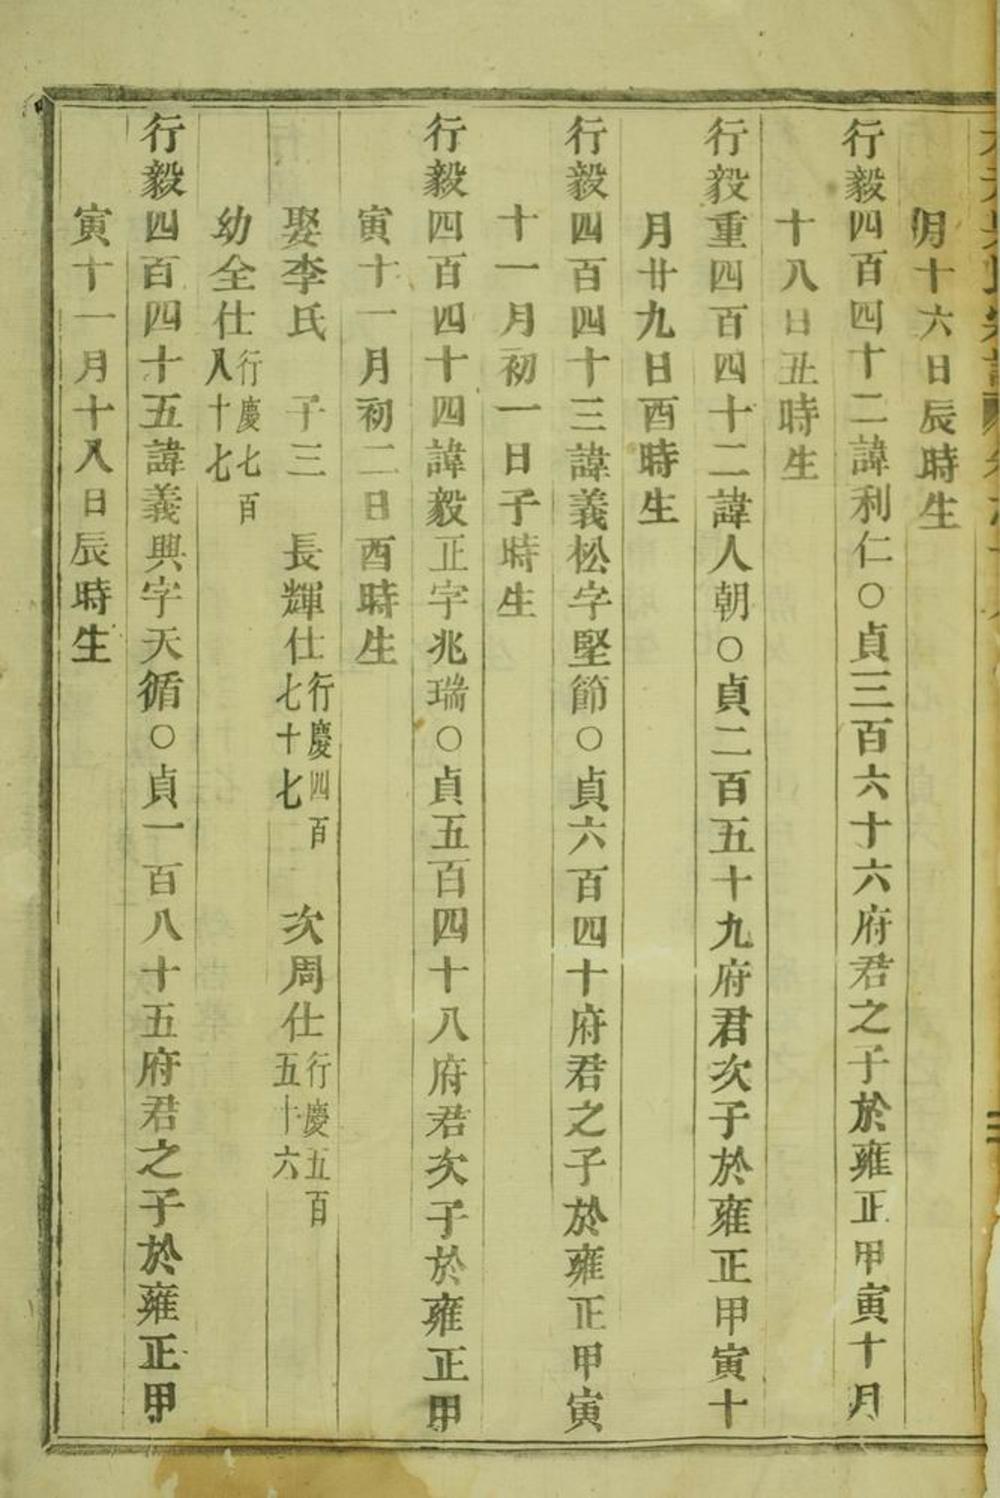 月十六日辰時生
行毅四百四十二諱利仁○貞三百六十六府君之子於雍正甲寅十月
十八日丑時生
行毅重四百四十二諱人朝○貞二百五十九府君次子於雍正甲寅十
月廿九日酉時生
行毅四百四十三諱義松字堅節○貞六百四十府君之子於雍正甲寅
十一月初一日子時生
行毅四百四十四諱毅正字兆瑞○貞五百四十八府君次子於雍正甲
寅十一月初二日酉時生
娶李氏 子三 長輝仕行慶四百七十七 次周仕行慶五百五十六
幼全仕行慶七百八十七
行毅四百四十五諱義興字天循○貞一百八十五府君之子於雍正甲
寅十一月十八日辰時生